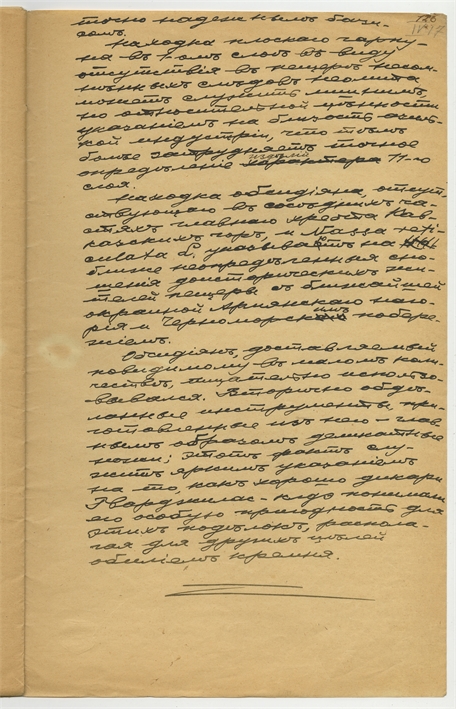 126
точно надежнымъ бази-
сомъ.
Находка плоскаго гарпу-
на въ 1-омъ слоѣ въ виду
отсутствія въ пещерѣ несом-
нѣнныхъ слѣдовъ неолита
можетъ служить лишнимъ,
но относительной цѣнности
указаніемъ на близость азиль-
ской индустріи, что тѣмъ
болѣе затрудняетъ точное
опредѣленіе характера 11-го
слоя.
Находка обсидіана, отсут-
ствующаго въ сосѣднихъ ча-
стяхъ главнаго хребта Кав-
казскихъ горъ, и Nassa reti-
culata L. указываютъ на
ближе неопредѣленныя сно-
шенія доисторическихъ жи-
телей пещеры съ ближайшей
окраиной Армянскаго наго-
рія и Черноморскимъ побере-
жіемъ.
Обсидіанъ, доставляемый
повидимому въ маломъ коли-
чествѣ, тщательно использо-
вывался. Вторично обдѣ-
ланные инструменты, при-
готовленные изъ него – глав-
нымъ образомъ деликатные
ножи; этотъ фактъ слу-
житъ яркимъ указаніемъ
на то, какъ хорошо дикари
Гварджилас-клдэ понимали
его особую пригодность для
этихъ подѣлокъ, распола-
гая для другихъ цѣлей
обиліемъ кремня.